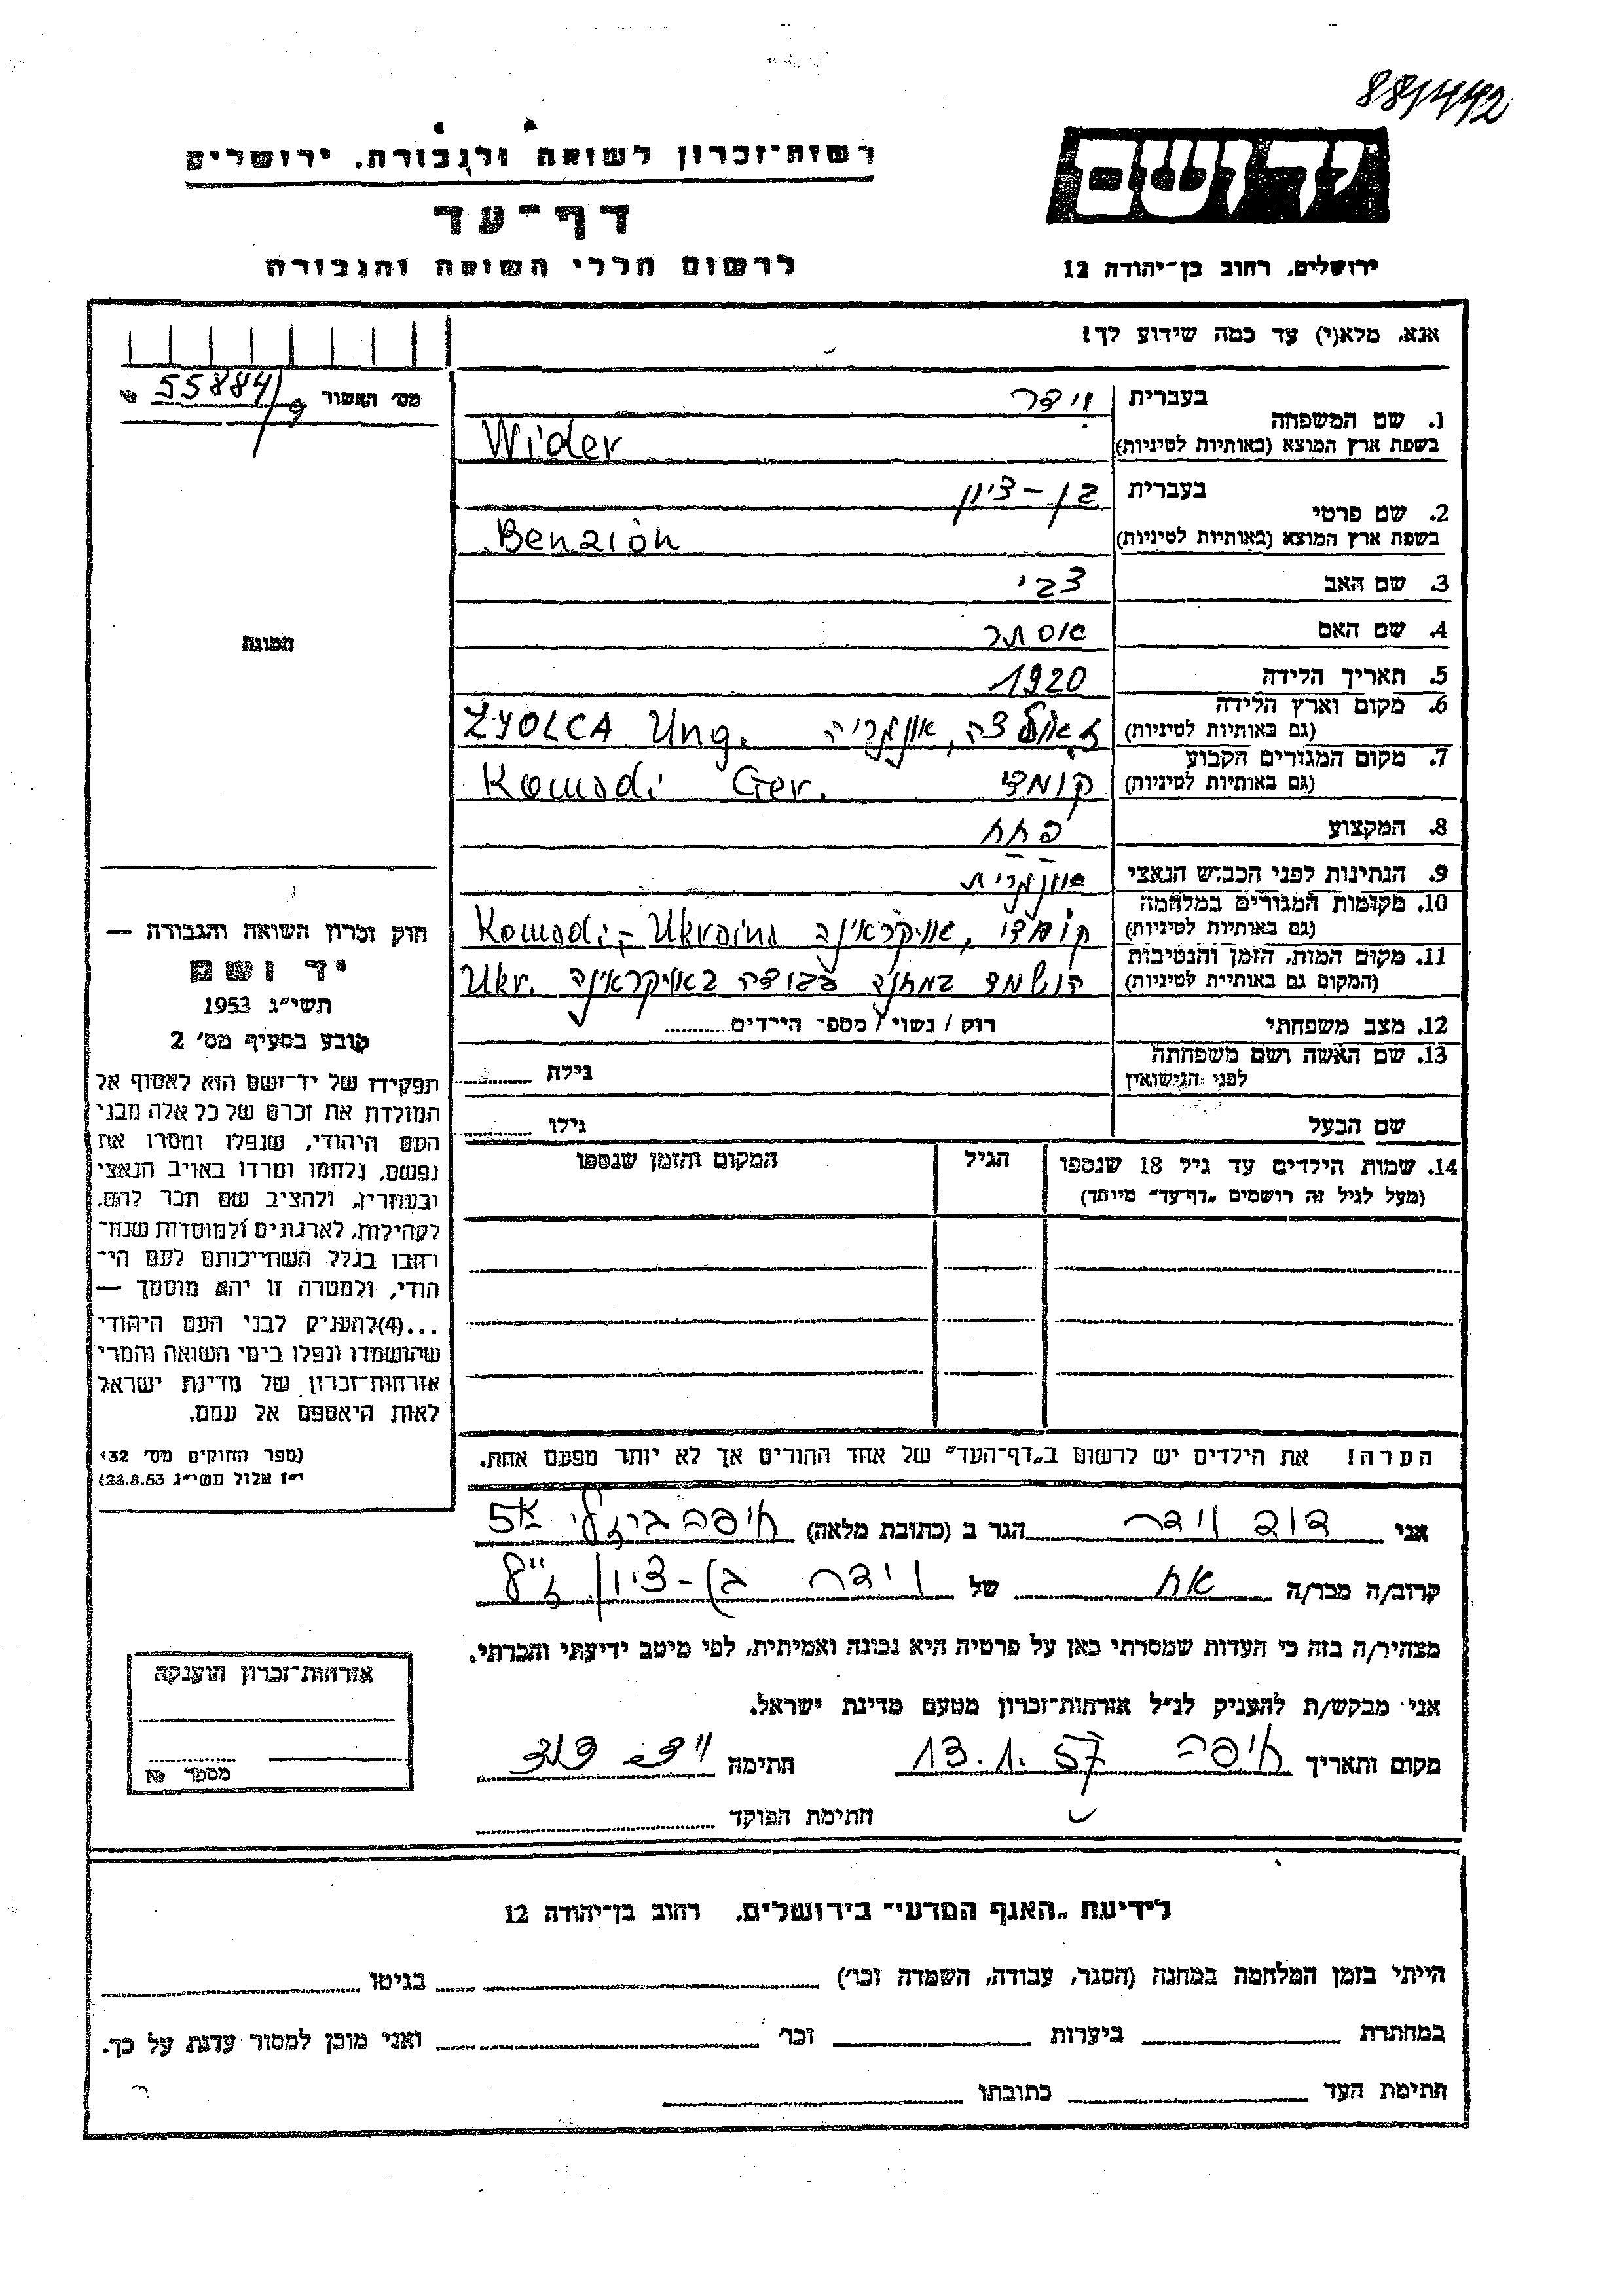 88/442
רשות-זכרון לשואה ולגבורה, ירושלים
דף-עד
לרשום חללי השואה והגבורה
יד ושם
ירושלים, רחוב בן-יהודה 12
אנא, מלא(י) עד כמה שידוע לך!
מס' האשור 55884/
1. שם המשפחה בעברית וידר
בשפת ארץ המוצא (באותיות לטיניות) Wider
2. שם פרטי בעברית בן-ציון
בשפת ארץ המוצא (באותיות לטיניות) Benzion
3. שם האב צבי
4. שם האם אסתר
5. תאריך הלידה 1920
6. מקום וארץ הלידה (גם באותיות לטיניות) ZYOLCA Ung.
7. מקום המגורים הקבוע (גם באותיות לטיניות) קומדי Komadi Ger.
8. המקצוע פחח
9. הנתינות לפני הכבוש הנאצי אונגרית
10. מקומות המגורים במלחמה (גם באותיות לטיניות) קומדי, אוקראינה Komadi,- Ukraina
11. מקום המות, הזמן והנסיבות (המקום גם באותיות לטיניות) הושמד במחנה עבודה באוקראינה Ukr.
12. מצב משפחתי רוק / נשוי / מספר הילדים
13. שם האשה ושם משפחתה לפני הנישואין גילה
שם הבעל גילו
14. שמות הילדים עד גיל 18 שנספו הגיל המקום והזמן שנספו
(מעל לגיל זה רושמים "דף-עד" מיוחד)
הערה! את הילדים יש לרשום ב"דף-העד" של אחד ההורים אך לא יותר מפעם אחת.
התמונה
חוק זכרון השואה והגבורה —
יד ושם
תשי"ג 1953
קובע בסעיף מס' 2
תפקידו של יד-ושם הוא לאסוף אל
המולדת את זכרם של כל אלה מבני
העם היהודי, שנפלו ומסרו את
נפשם, נלחמו ומרדו באויב הנאצי
ובעוזריו, ולהציב שם וזכר להם,
לקהילות, לארגונים ולמוסדות שנח-
רבו בגלל השתייכותם לעם הי-
הודי, ולמטרה זו יהא מוסמך —
...(4)להעניק לבני העם היהודי
שהושמדו ונפלו בימי השואה והמרי
אזרחות-זכרון של מדינת ישראל
לאות היאספם אל עמם.
(ספר החוקים מס' 132
י"ז אלול תשי"ג 28.8.53)
אני דוד וידר הגר ב (כתובת מלאה) חיפה
קרוב/ה מכר/ה אח של וידר בן-ציון ז"ל
מצהיר/ה בזה כי העדות שמסרתי כאן על פרטיה היא נכונה ואמיתית, לפי מיטב ידיעתי והכרתי.
אני מבקש/ת להעניק לנ"ל אזרחות-זכרון מטעם מדינת ישראל.
מקום ותאריך חיפה 13.1.57 חתימה וידר דוד
חתימת הפוקד
אזרחות-זכרון הוענקה
מספר №
לידיעת "האגף המדעי" בירושלים, רחוב בן-יהודה 12
הייתי בזמן המלחמה במחנה (הסגר, עבודה, השמדה וכו') בגיטו
במחתרת ביערות וכו' ואני מוכן למסור עדות על כך.
חתימת העד כתובתו